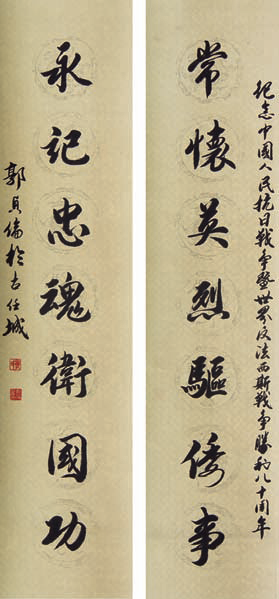 纪念中國人民抗日戰争暨世界反法西斯戰争勝利八十周年
常懷英烈驅倭事
永记忠魂衛國功
郭貝倫於古任城